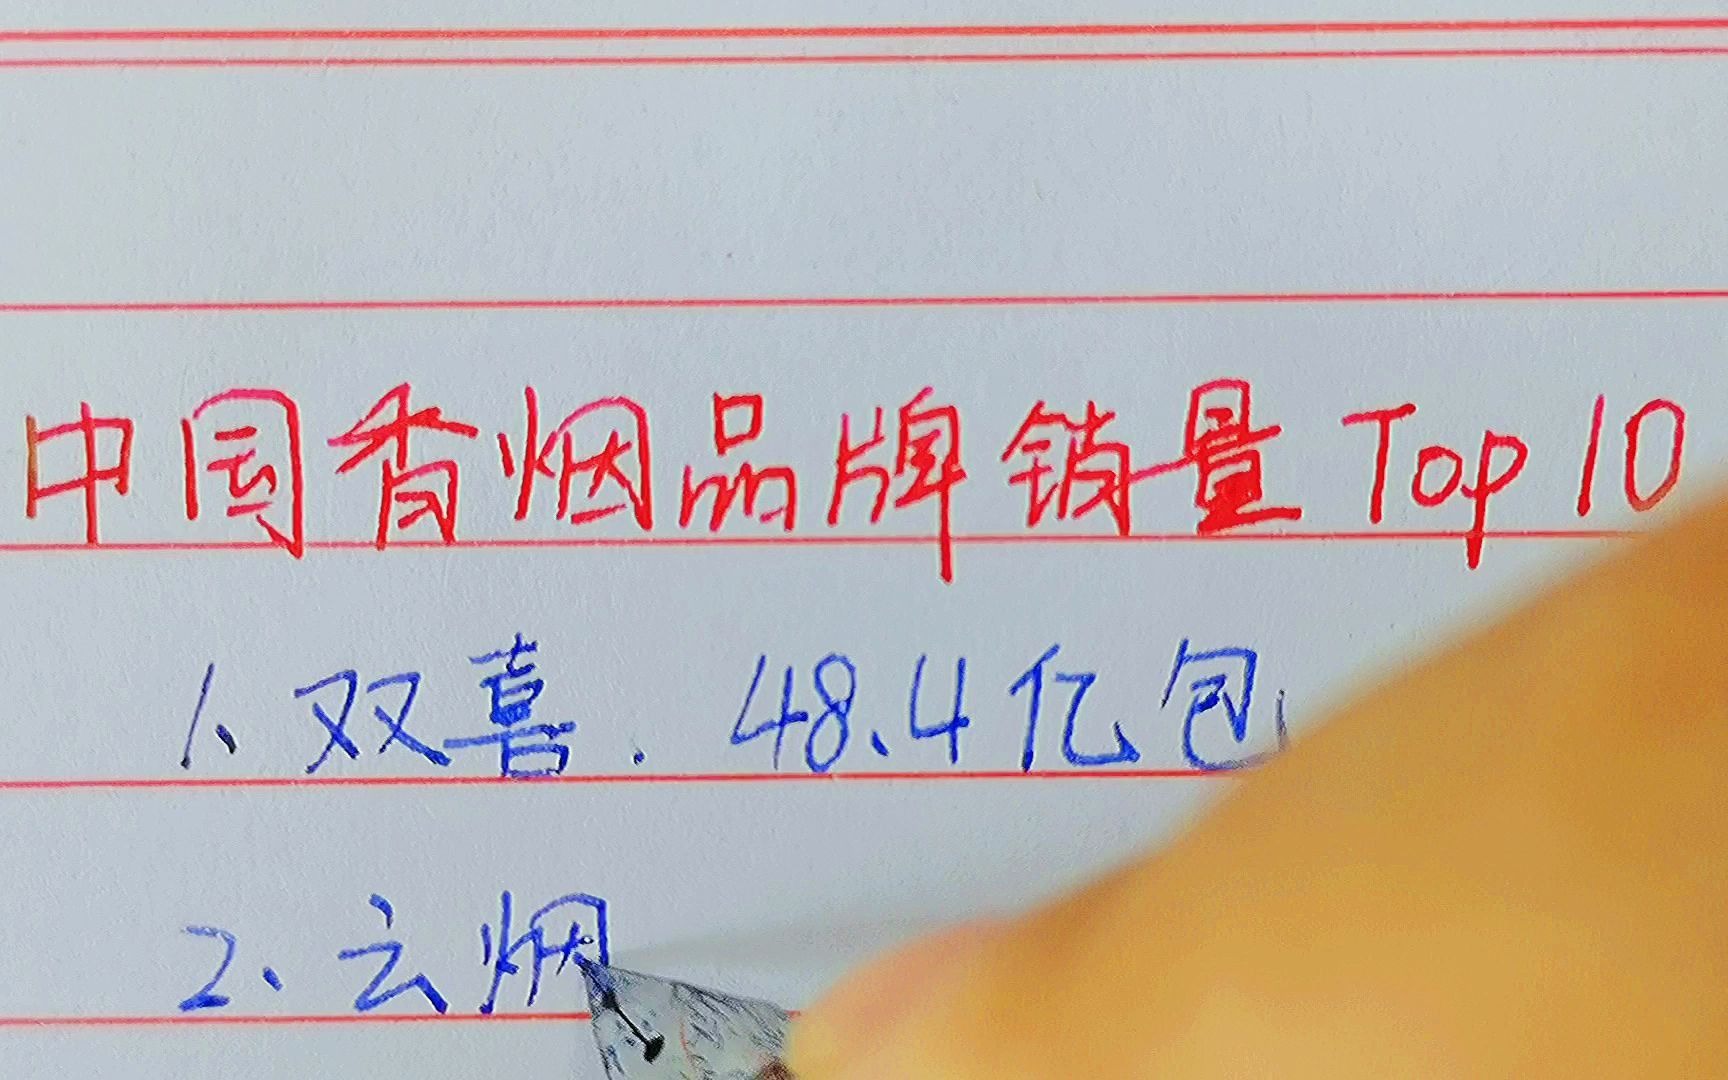 中国香烟品牌销量Top10
1、双喜.48.4亿包
2、云烟